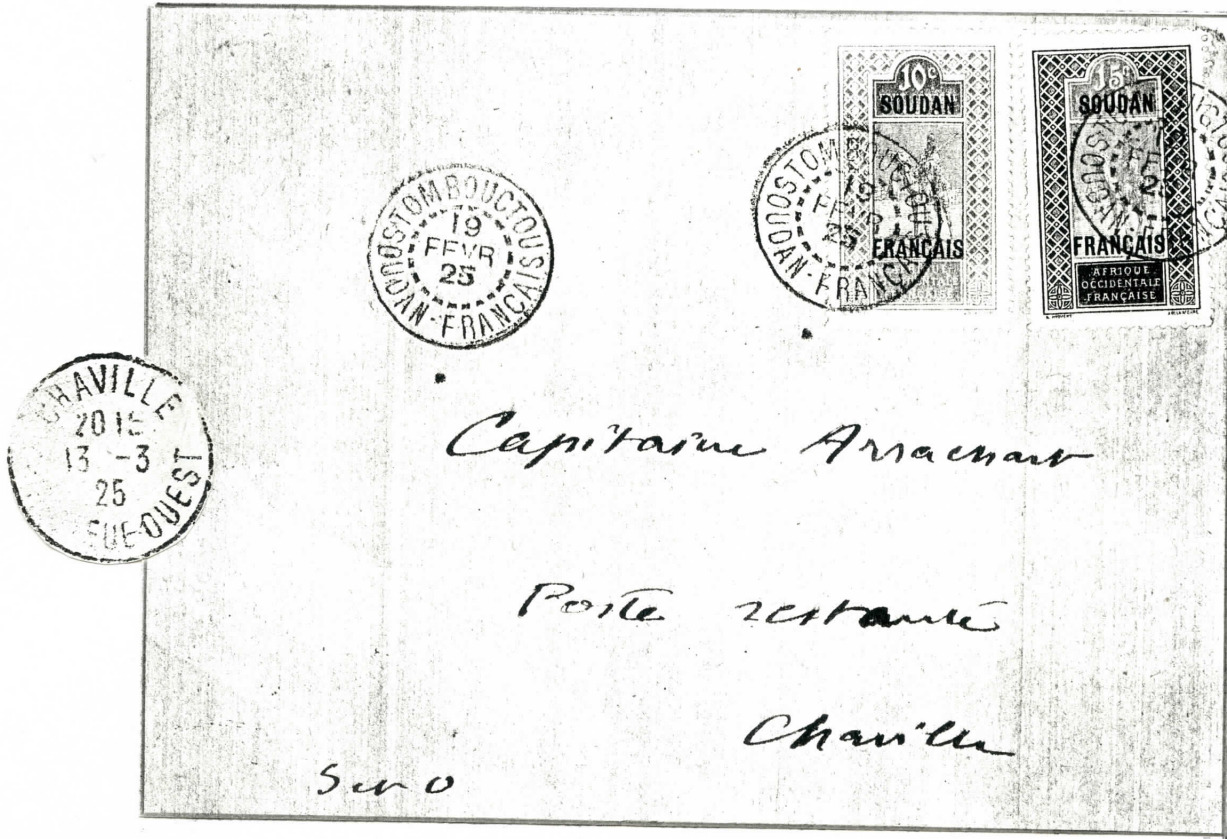 10c
SOUDAN
FRANÇAIS
15c
SOUDAN
FRANÇAIS
AFRIQUE
OCCIDENTALE
FRANÇAISE
TOMBOUCTOU
19
FEVR
25
SOUDAN-FRANÇAIS
TOMBOUCTOU
19
FEVR
25
SOUDAN-FRANÇAIS
CHAVILLE
20 15
13 -3
25
Capitaine Arrachart
Poste restante
Chaville
S et O